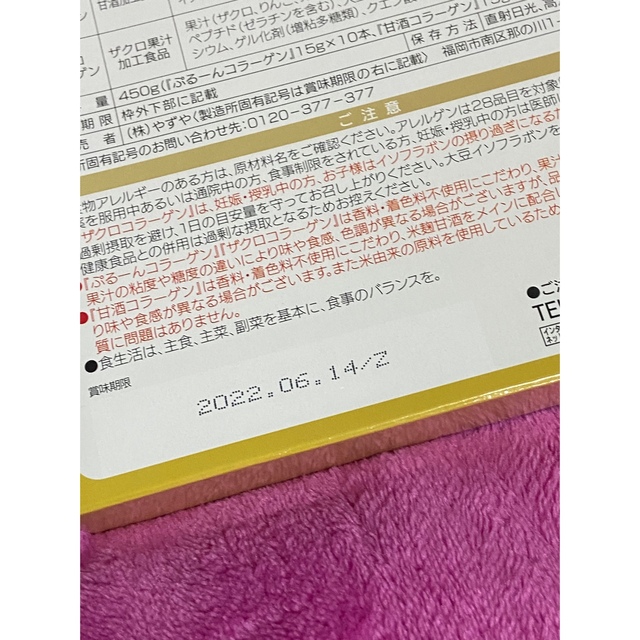 甘酒加工
ザクロ果汁
加工食品
果汁(ザクロ、りんご、
ペプチド(ゼラチンを含む)、
シウム、ゲル化剤(増粘多糖類)、クエン酸
量 450g(『ぷるーんコラーゲン』15g×10本、『甘酒コラーゲン』15g
期限 枠外下部に記載 保存方法 直射日光、高
売者 (株)やずや(製造所固有記号は賞味期限の右に記載) 福岡市南区那の川1-
所固有記号のお問い合わせ先:0120-377-377
ご注意
物アレルギーのある方は、原材料名をご確認ください。アレルゲンは28品目を対象
を服用中あるいは通院中の方、食事制限をされている方、妊娠・授乳中の方は医師に
ザクロコラーゲン』は、妊娠・授乳中の方、お子様はイソフラボンの摂り過ぎになるため
過剰摂取を避け、1日の目安量を守ってお召し上がりください。大豆イソフラボンを
健康食品との併用は過剰な摂取となるためお控えください。
●『ぷるーんコラーゲン』『ザクロコラーゲン』は香料・着色料不使用にこだわり、果汁
果汁の粘度や糖度の違いにより味や食感、色調が異なる場合がございますが、品
●『甘酒コラーゲン』は香料・着色料不使用にこだわり、米麹甘酒をメインに配合し
り味や食感が異なる場合がございます。また米由来の原料を使用しているため
質に問題はありません。
●食生活は、主食、主菜、副菜を基本に、食事のバランスを。
●ご注
TEL
インタ
ネット
賞味期限
2022.06.14/Z